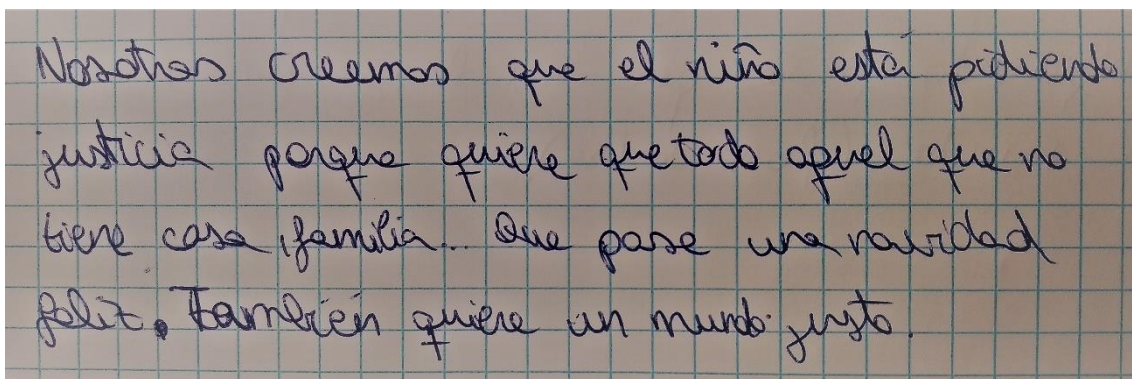 Nosotros creemos que el niño está pidiendo
justicia porque quiere que todo aquel que no
tiene casa, familia... Que pase una navidad
feliz. También quiere un mundo justo.